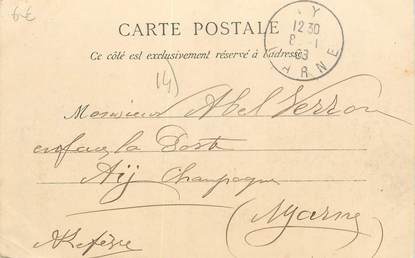 6€
CARTE POSTALE
Ce côté est exclusivement réservé à l'adresse
Y
12 30
8 - 1
03
ARNE
14)
Monsieur Abel Verron
en face la Poste
Aÿ Champagne
(Marne)